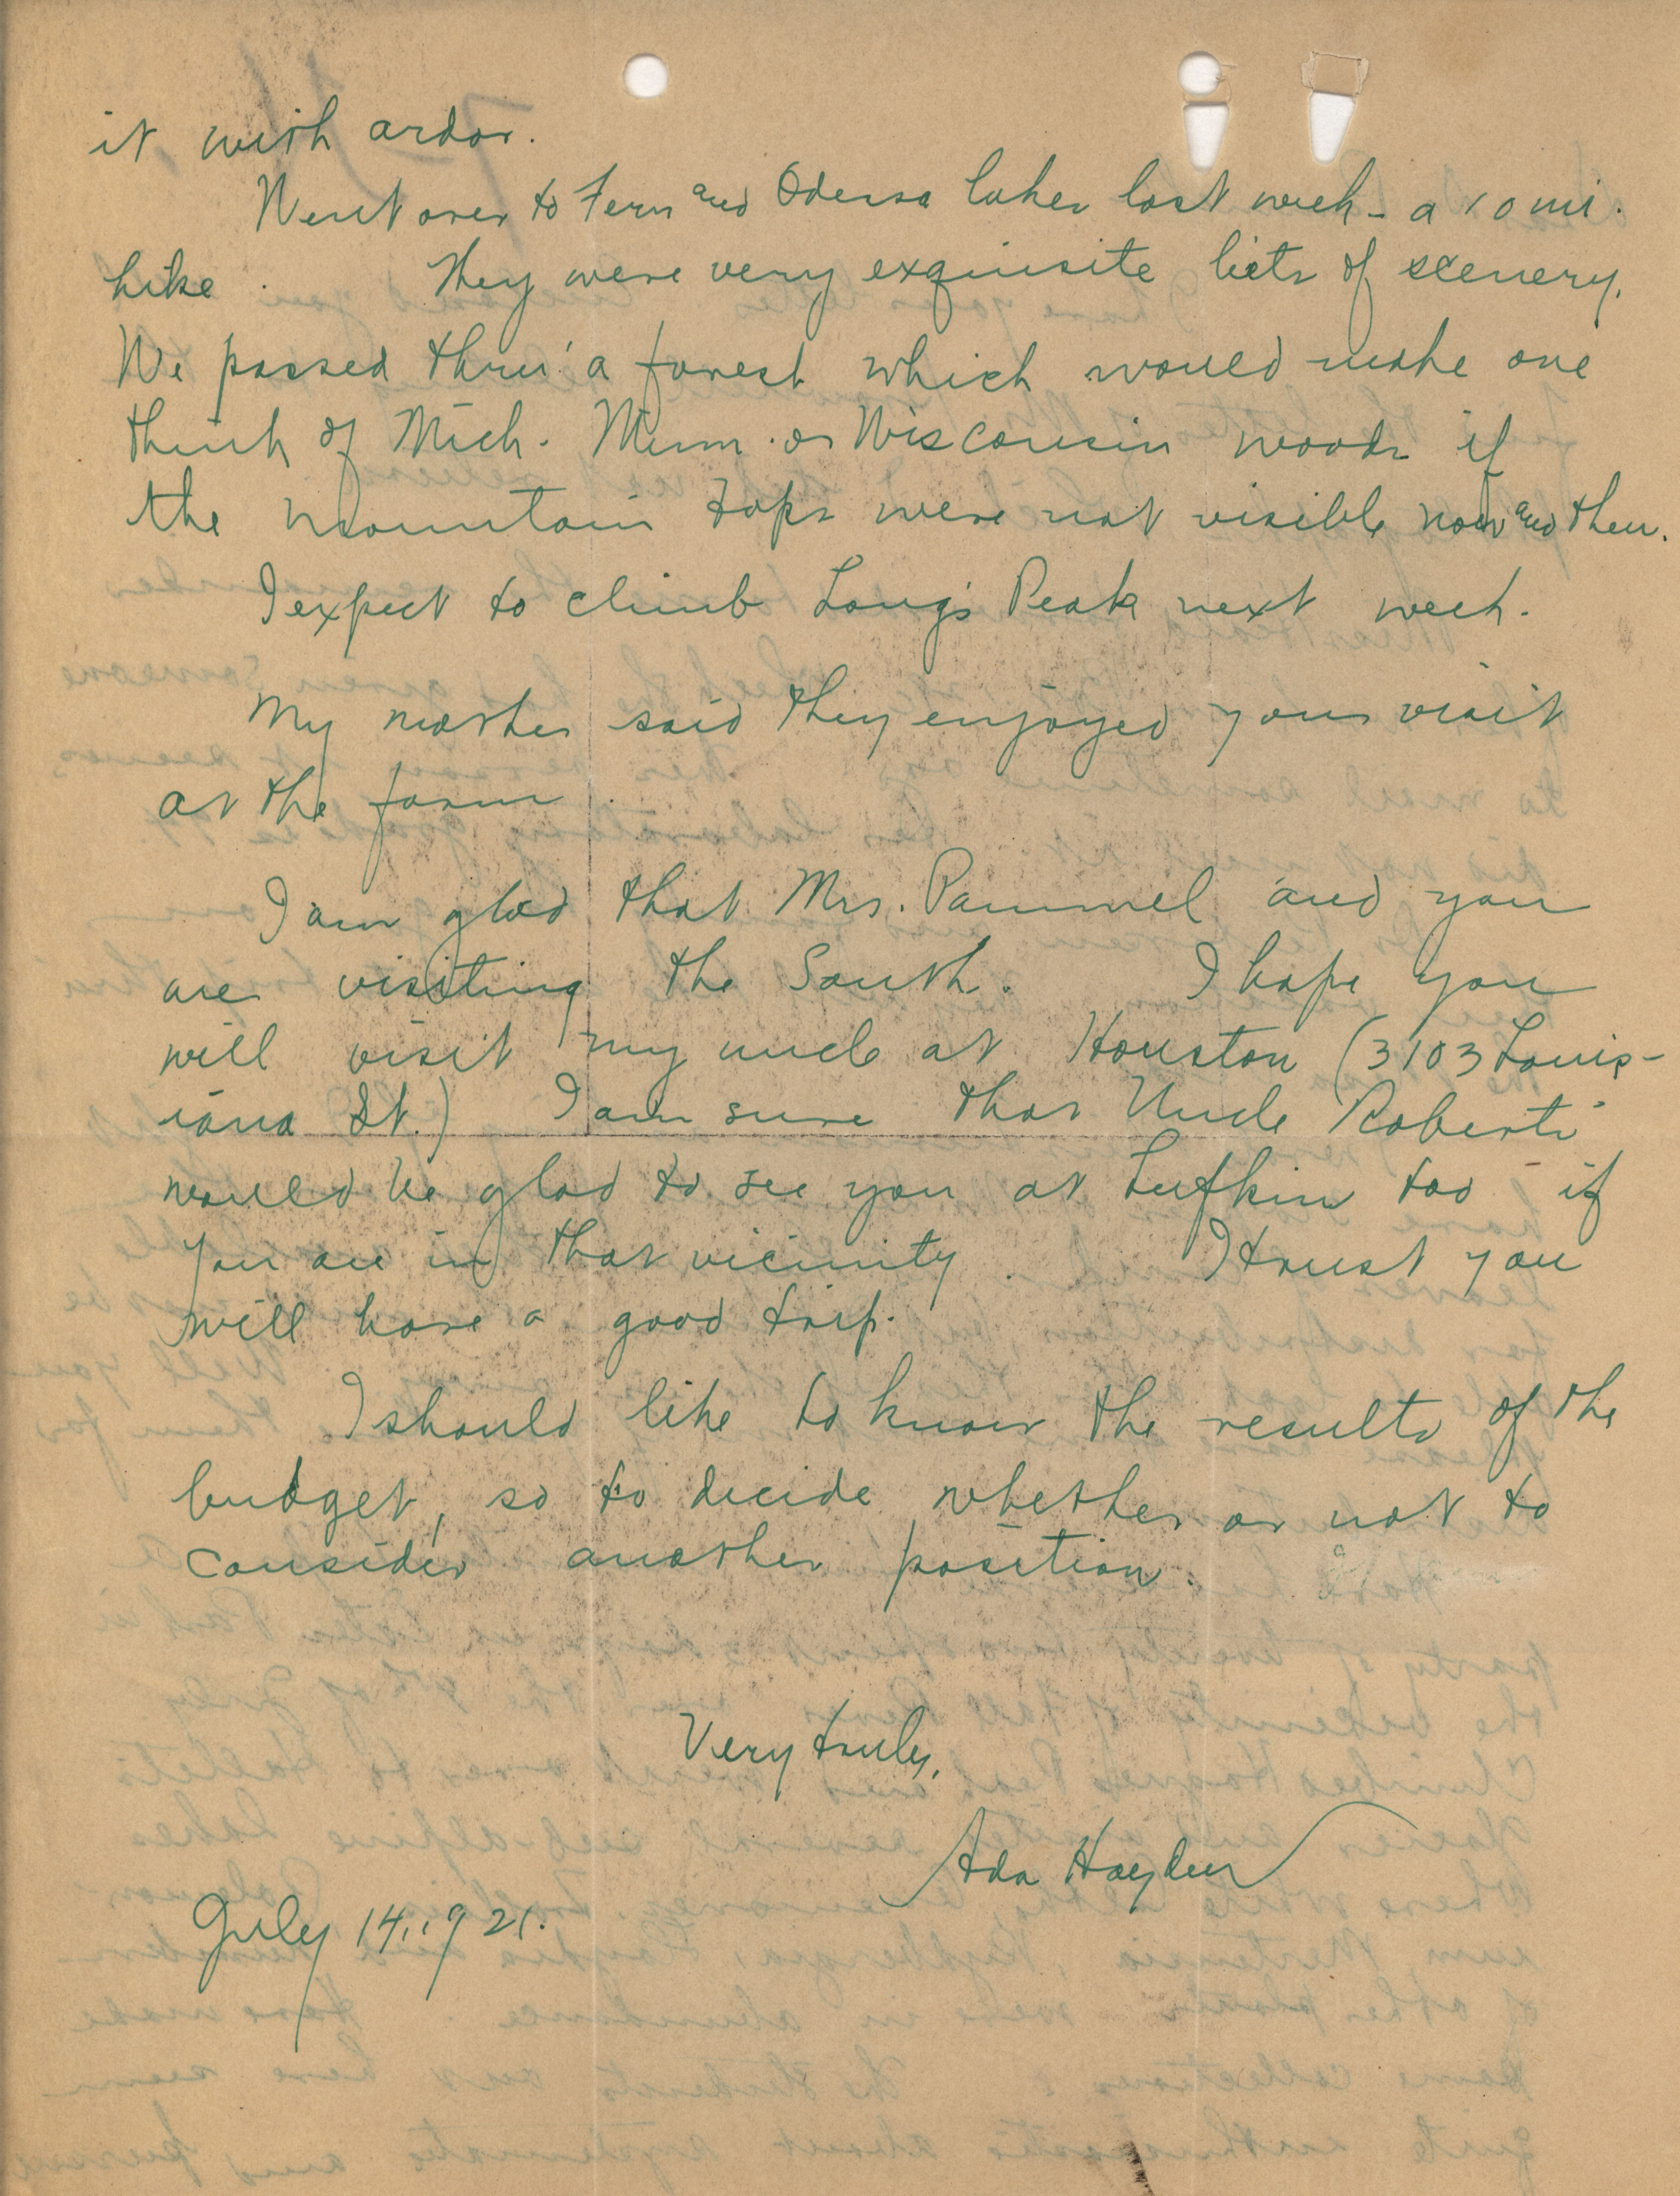 it with ardor.
Went over to Fern and Odessa lakes last week - a 10 mi.
hike. They were very exquisite bits of scenery.
We passed thru' a forest which would make one
think of Mich. Minn. or Wisconsin woods if
the mountain tops were not visible now and then.
I expect to climb Long's Peak next week.
My mother said they enjoyed your visit
at the farm.
I am glad that Mrs. Pammel and you
are visiting the South. I hope you
will visit my uncle at Houston (3103 Louis-
iana St.) I am sure that Uncle Robert
would be glad to see you at Lufkin too if
you are in that vicinity. I trust you
will have a good trip.
I should like to know the results of the
budget, so to decide whether or not to
consider another position.
Very truly,
Ada Hayden
July 14, 1921.